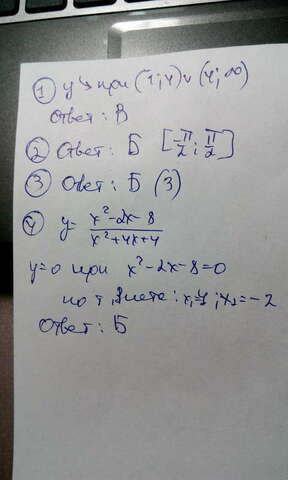 ① y ↘ при (1; 4) ∪ (4; ∞)
Ответ: В
② Ответ: Б [-π/2; π/2]
③ Ответ: Б (3)
④ y = (x²-2x-8)/(x²+4x+4)
y=0 при x²-2x-8=0
по т. Виета: x₁=4; x₂=-2
Ответ: Б